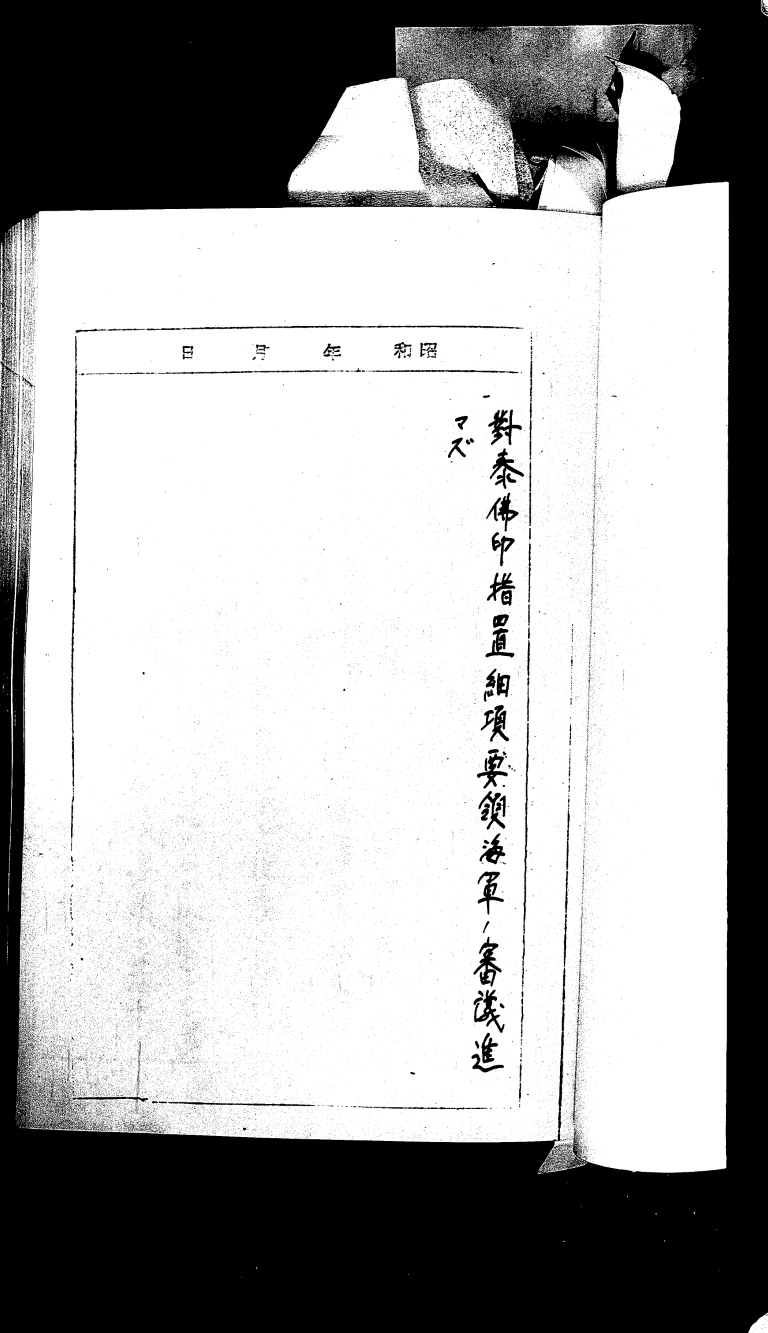 昭和 年 月 日
對泰佛印措置細項要領海軍ノ審議進
マズ